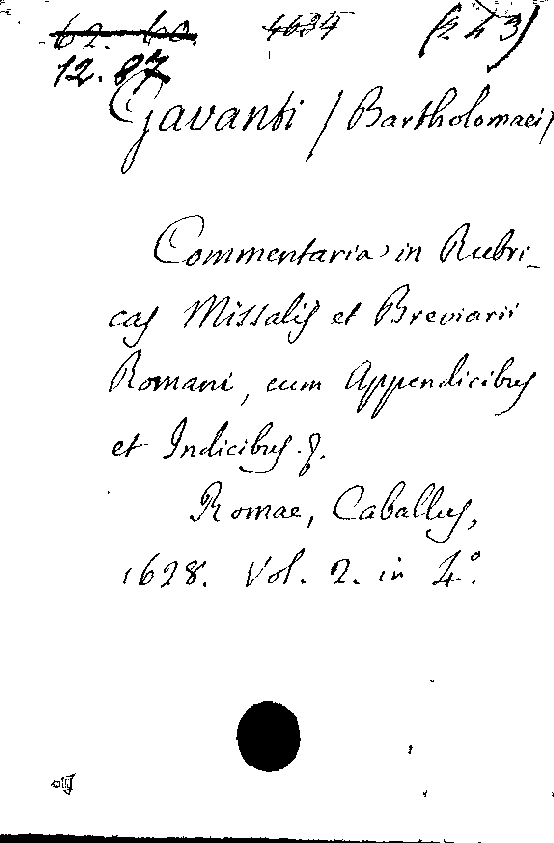 62. 60. 4634 (243)
12.87
Gavanti / Bartholomaei /
Commentaria in Rubri-
cas Missalis et Breviarii
Romani, cum Appendicibus
et Indicibus.
Romae, Caballus,
1628. Vol. 2. in 4°.